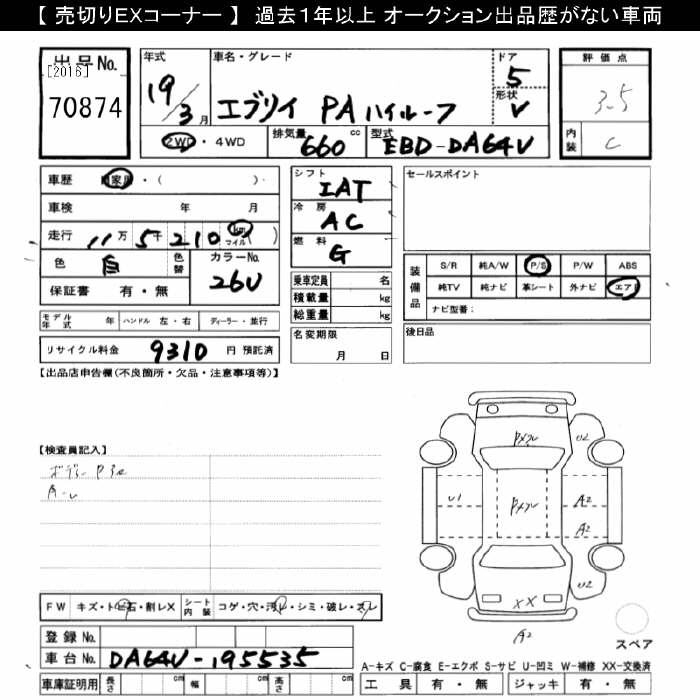 【 売切りEXコーナー 】 過去１年以上 オークション出品歴がない車両
出品No.
[2016]
70874
年式
19/3月
車名・グレード
エブリイ PAハイルーフ
ドア
5
形状
V
2WD・4WD
排気量
660 cc
型式
EBD-DA64V
評価点
3.5
内装
C
車歴
自家用・( )
車検 年 月
走行 11万5千210 km マイル( )
色 白 色替
カラーNo.
26U
保証書 有・無
シフト
IAT
冷房
AC
燃料
G
乗車定員 名
積載量 kg
総重量 kg
セールスポイント
装備品
S/R 純A/W P/S P/W ABS
純TV 純ナビ 革シート 外ナビ エアB
ナビ型番:
モデル年式 年 ハンドル 左・右 ディーラー・並行
リサイクル料金 9310 円 預託済
名変期限
月 日
後日品
【出品店申告欄(不良箇所・欠品・注意事項等)】
【検査員記入】
ボデー
Pメクレ
U2
U1
Pメクレ
A2
A2
U2
XX
A2
スペア
FW キズ・トビ石・割レX シート内装 コゲ・穴・汚レ・シミ・破レ・スレ
登録 No.
車台 No. DA64V-195535
車庫証明用 長さ cm 幅 cm 高さ cm
A-キズ C-腐食 E-エクボ S-サビ U-凹ミ W-補修 XX-交換済
工具 有・無 ジャッキ 有・無